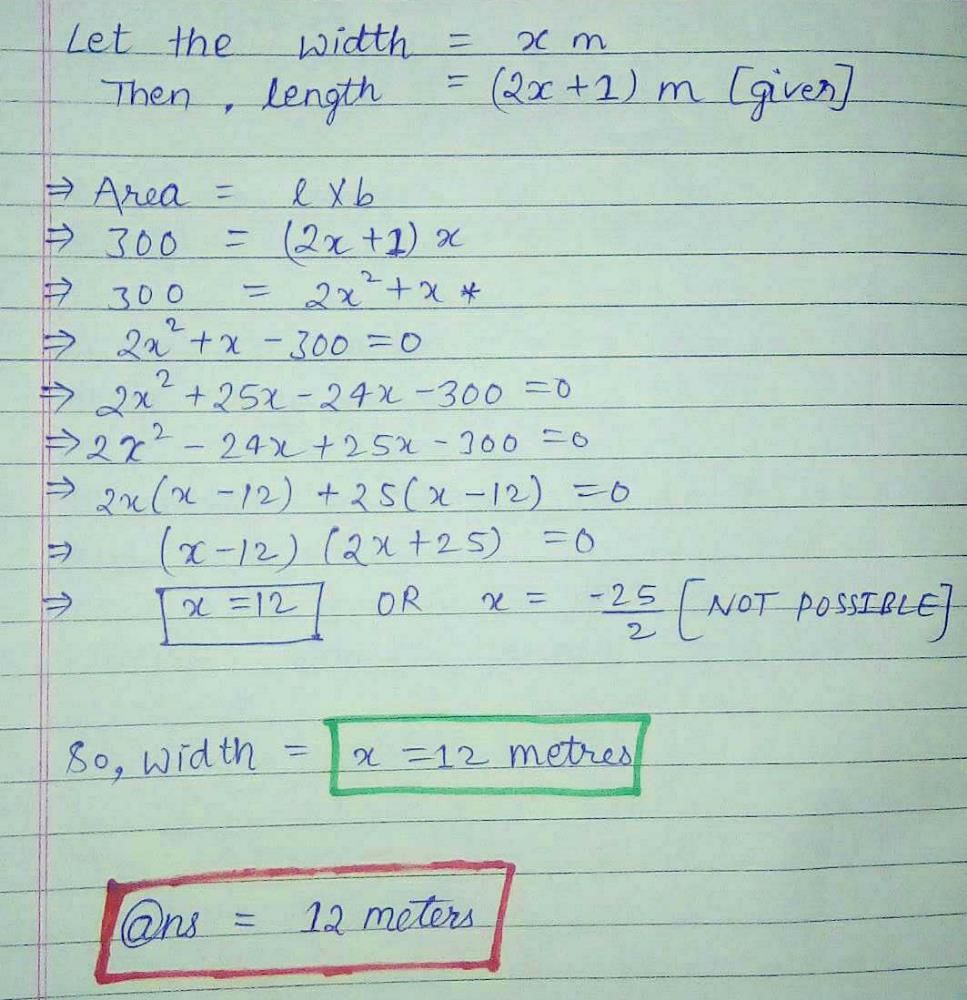 Let the width = x m
Then, length = (2x+1) m [given]
⇒ Area = l x b
⇒ 300 = (2x+1) x
⇒ 300 = 2x²+x *
⇒ 2x²+x-300=0
⇒ 2x²+25x-24x-300=0
⇒ 2x²-24x+25x-300=0
⇒ 2x(x-12)+25(x-12)=0
⇒ (x-12)(2x+25)=0
⇒ x=12 OR x = -25/2 [NOT POSSIBLE]
So, width = x=12 metres
@ns = 12 meters